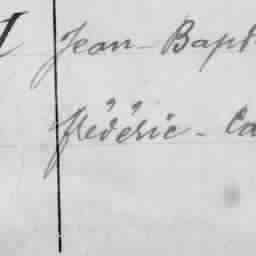 Jean-Bapt
Frédéric-Ca